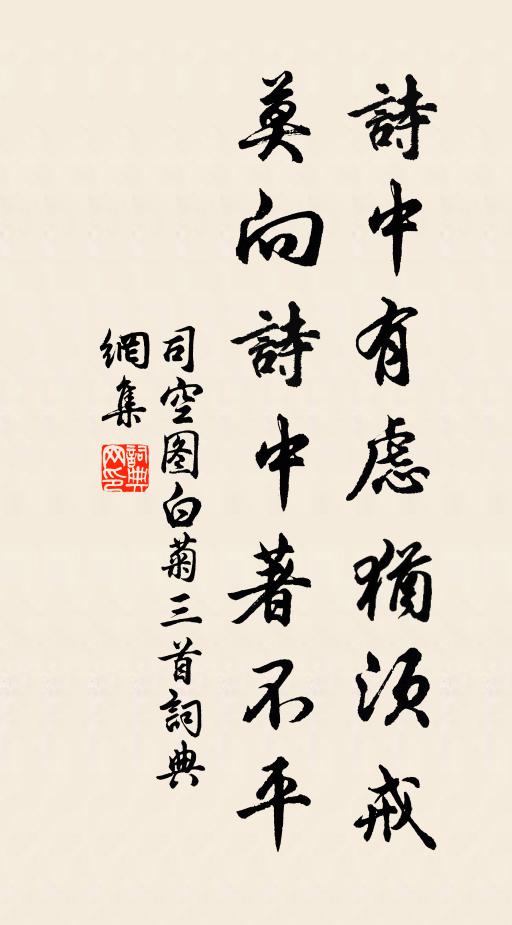 詩中有慮猶須戒
莫向詩中著不平
司空图白菊三首詞典
網集
詞典
网印